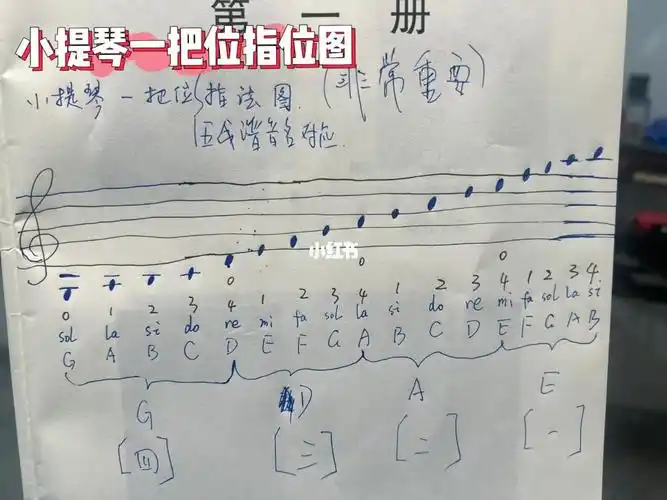 第一册
小提琴一把位指位图
小提琴一把位 指法图 (非常重要)
五线谱音名对应
小红书
0 0 0
0 1 2 3 4 1 2 3 4 1 2 3 4 1 2 3 4
sol la si do re mi fa sol la si do re mi fa sol la si
G A B C D E F G A B C D E F G A B
G D A E
[四] [三] [二] [一]